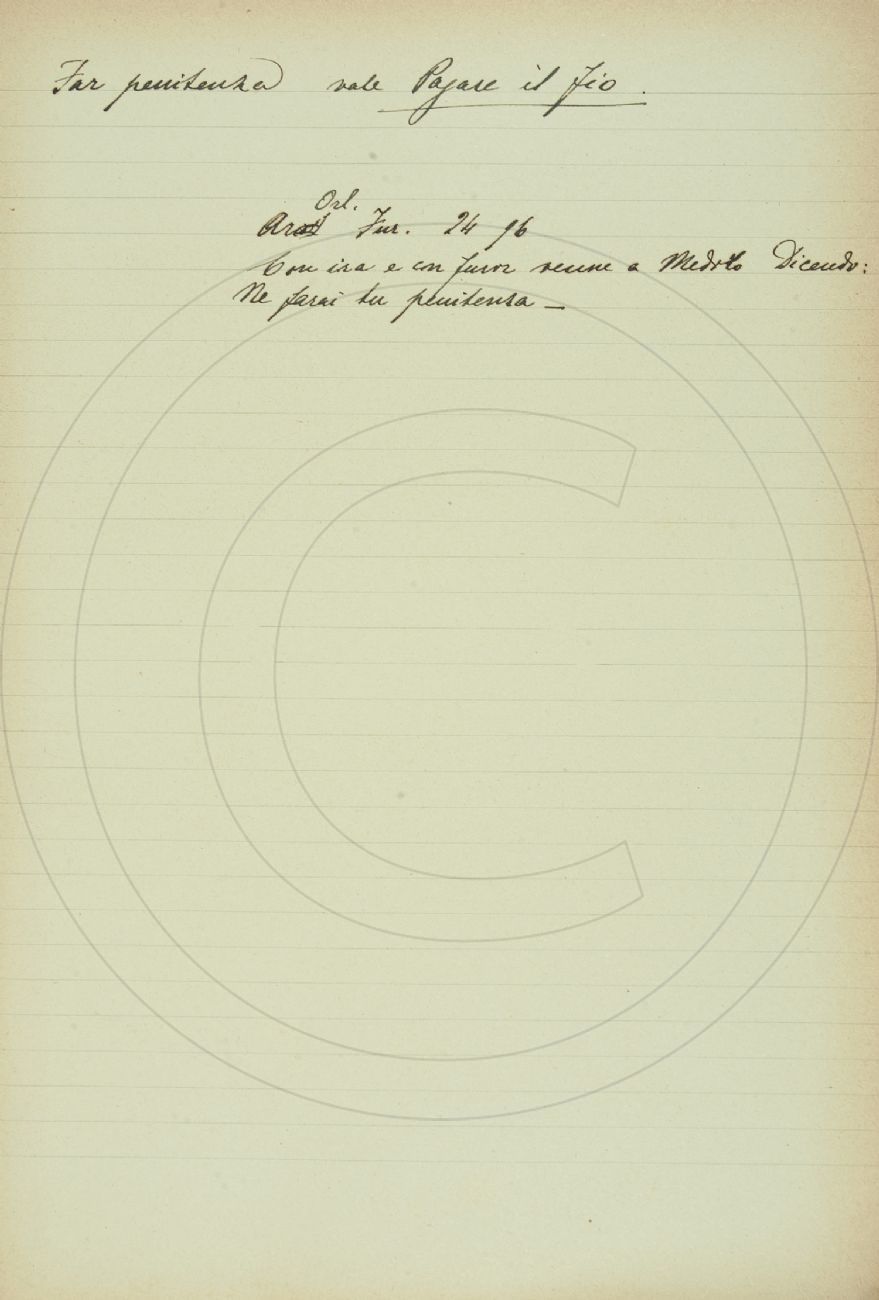 Far penitenza vale Pagare il fio.
Orl.
Fur. 24 96
Con ira e con furor venne a Medoro Dicendo:
Ne farai tu penitenza —